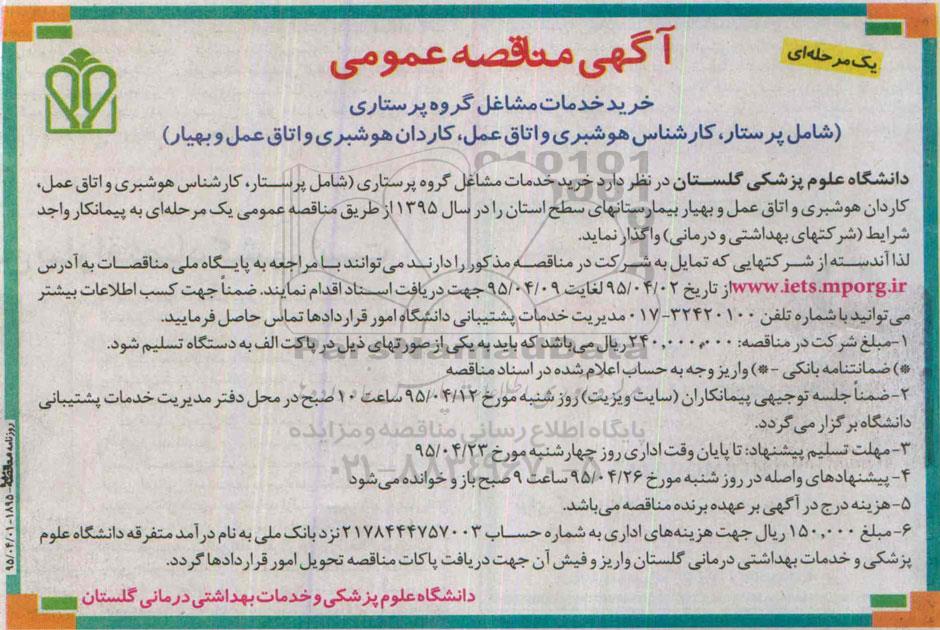 آگهی مناقصه عمومی
یک مرحله‌ای
خرید خدمات مشاغل گروه پرستاری
(شامل پرستار، کارشناس هوشبری و اتاق عمل، کاردان هوشبری و اتاق عمل و بهیار)
دانشگاه علوم پزشکی گلستان در نظر دارد خرید خدمات مشاغل گروه پرستاری (شامل پرستار، کارشناس هوشبری و اتاق عمل،
کاردان هوشبری و اتاق عمل و بهیار بیمارستانهای سطح استان را در سال ۱۳۹۵ از طریق مناقصه عمومی یک مرحله‌ای به پیمانکار واجد
شرایط (شرکتهای بهداشتی و درمانی) واگذار نماید.
لذا آندسته از شرکتهایی که تمایل به شرکت در مناقصه مذکور را دارند می توانند با مراجعه به پایگاه ملی مناقصات به آدرس
www.iets.mporg.ir از تاریخ ۹۵/۰۴/۰۲ لغایت ۹۵/۰۴/۰۹ جهت دریافت اسناد اقدام نمایند. ضمناً جهت کسب اطلاعات بیشتر
می توانید با شماره تلفن ۳۲۴۲۰۱۰۰-۰۱۷ مدیریت خدمات پشتیبانی دانشگاه امور قراردادها تماس حاصل فرمایید.
۱-مبلغ شرکت در مناقصه: ۲۴۰,۰۰۰,۰۰۰ ریال می‌باشد که باید به یکی از صورتهای ذیل در پاکت الف به دستگاه تسلیم شود.
*) ضمانتنامه بانکی -*) واریز وجه به حساب اعلام شده در اسناد مناقصه
۲-ضمناً جلسه توجیهی پیمانکاران (سایت ویزیت) روز شنبه مورخ ۹۵/۰۴/۱۲ ساعت ۱۰ صبح در محل دفتر مدیریت خدمات پشتیبانی
دانشگاه برگزار می گردد.
۳-مهلت تسلیم پیشنهاد: تا پایان وقت اداری روز چهارشنبه مورخ ۹۵/۰۴/۲۳
۴-پیشنهادهای واصله در روز شنبه مورخ ۹۵/۰۴/۲۶ ساعت ۹ صبح باز و خوانده می‌شود
۵-هزینه درج در آگهی بر عهده برنده مناقصه می‌باشد.
۶-مبلغ ۱۵۰,۰۰۰ ریال جهت هزینه‌های اداری به شماره حساب ۲۱۷۸۴۴۴۷۵۷۰۰۳ نزد بانک ملی به نام درآمد متفرقه دانشگاه علوم
پزشکی و خدمات بهداشتی درمانی گلستان واریز و فیش آن جهت دریافت پاکات مناقصه تحویل امور قراردادها گردد.
دانشگاه علوم پزشکی و خدمات بهداشتی درمانی گلستان
روزنامه مناقصه ۱۸۹۵-۹۵/۰۴/۰۱
ParsNamadData
پایگاه اطلاع رسانی مناقصه و مزایده
۰۲۱-۸۸۳۴۹۶۷۰-۵